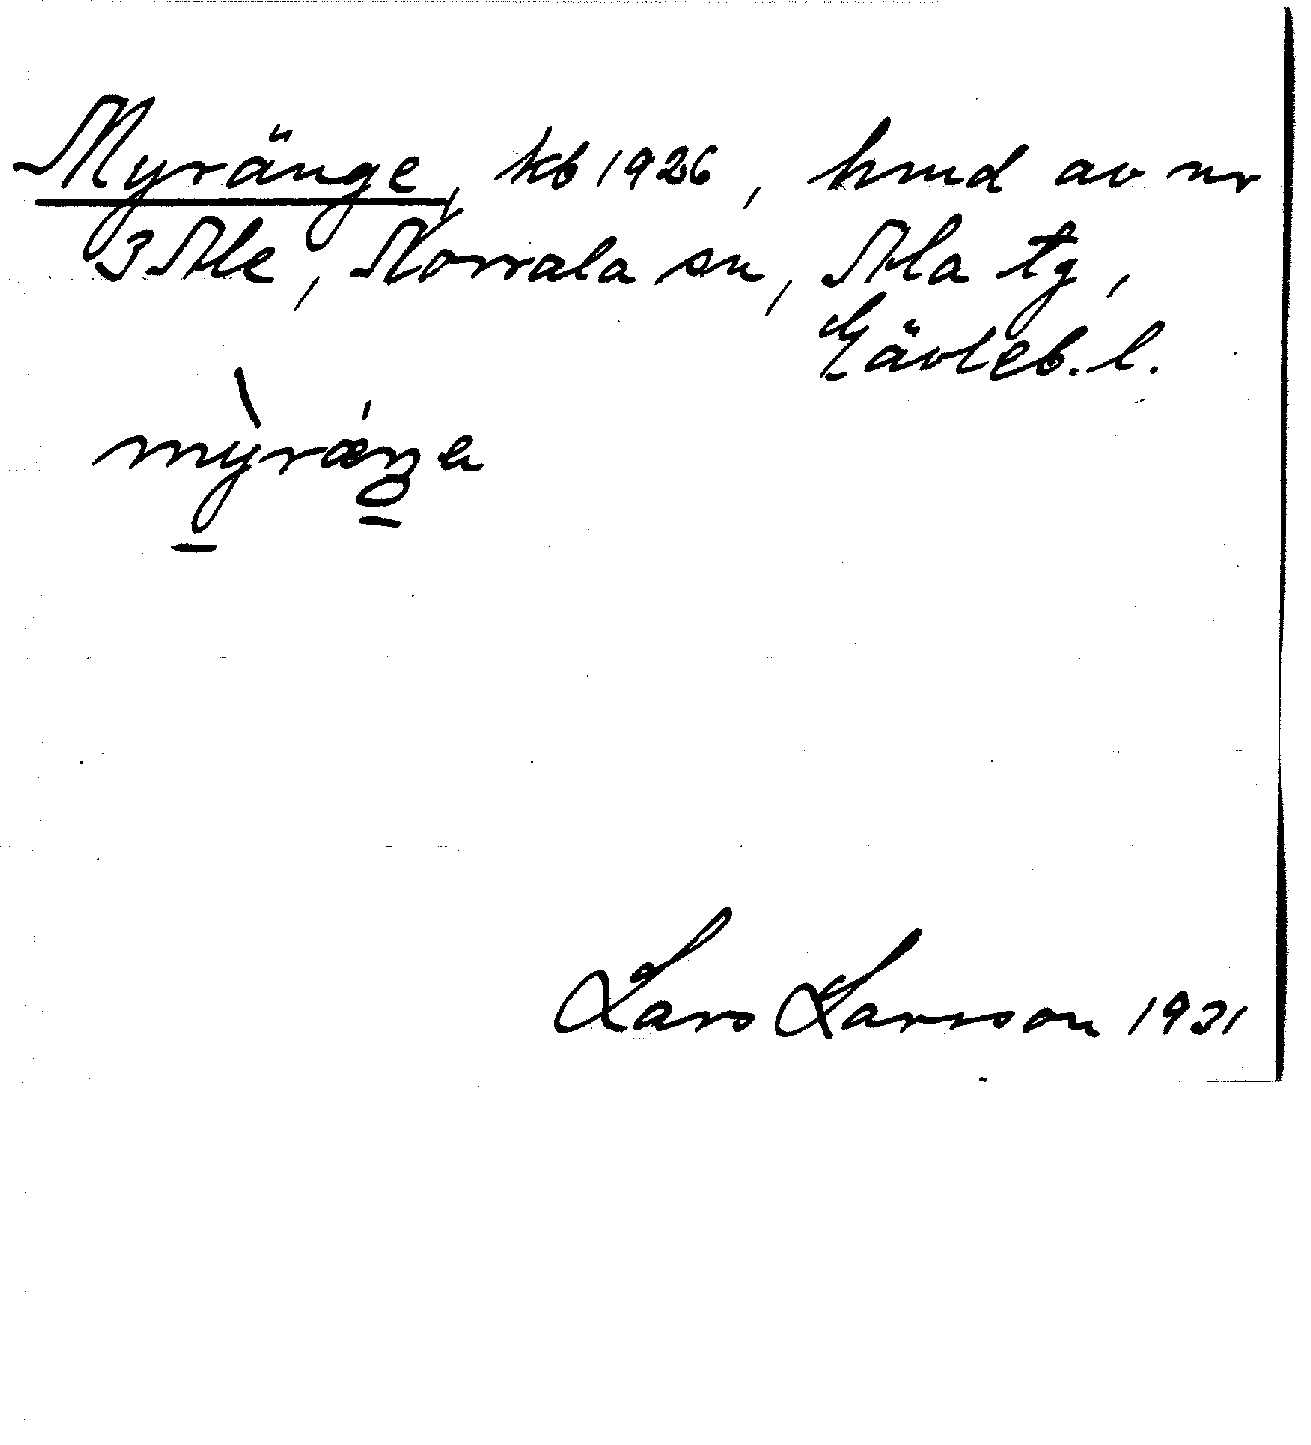 Myränge, kb 1926, hmd av nr
3 Ale, Norrala sn, Ala tg,
Gävleb. l.
Lars Larsson 1931